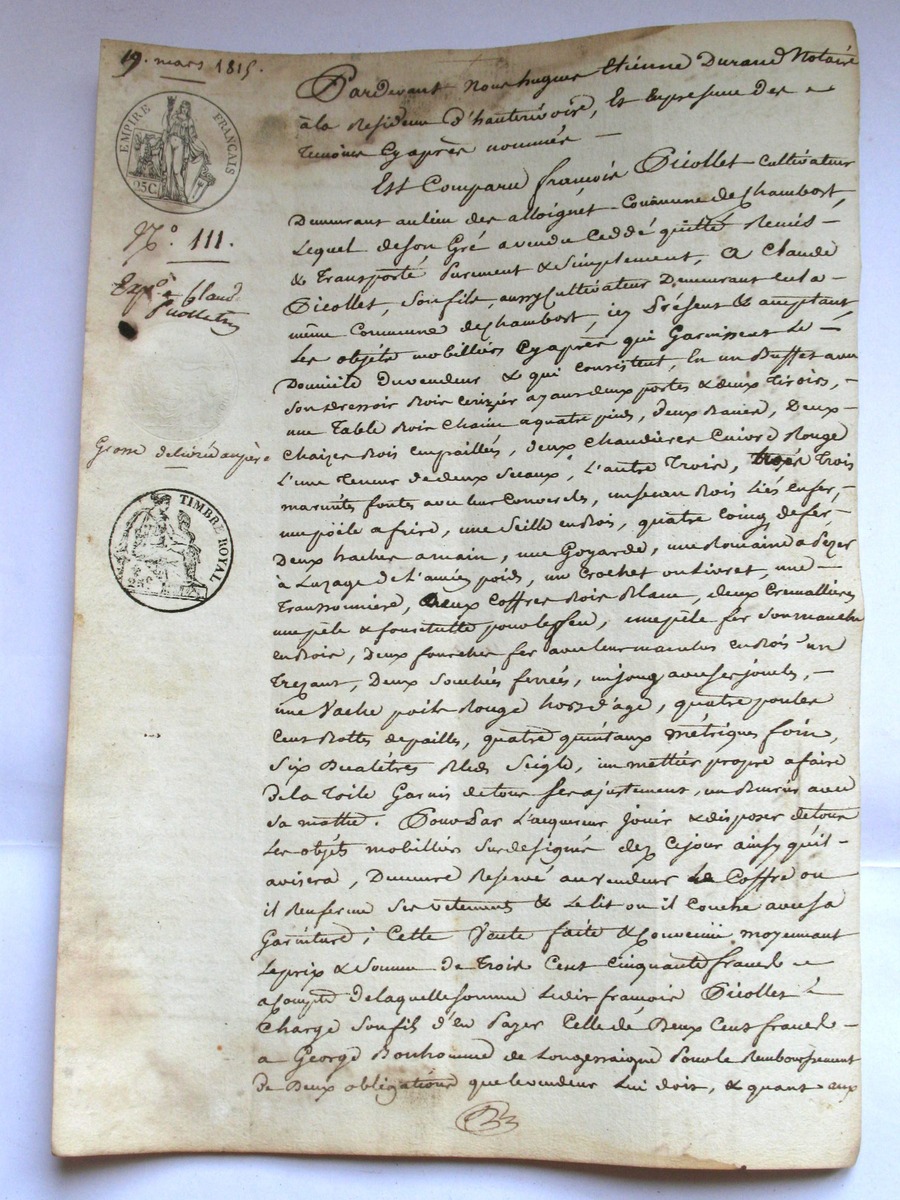 19. mars 1815.
EMPIRE FRANÇAIS
25C
N.º 111.
Exp.on a Claude
Picollet
Grosse délivrée au père
TIMBRE ROYAL
25C
Pardevant Nous hugues Etienne Durand Notaire
à la Residence d'hauterivoire, Et En presence des
temoins Cyaprès nommés —
Est Comparu françois Picollet Cultivateur
Demeurant au lieu des alloignet Commune de Chambost,
Lequel de son Gré a vendu Ceddé quitté Remis –
& Transporté Purement & Simplement, A Claude
Picollet, Son fils, aussy Cultivateur Demeurant en la
même Commune de Chambost, icy Présent & acceptant
Les objets mobilliers Cyaprès qui Garnissent Le –
Domicile du vendeur & qui consistent, En un Buffet avec
son dressoir Bois Cerizier ayant deux portes & deux Tiroirs, –
une Table Bois Chaine a quatre pieds, deux Bancs, Deux –
Chaizes Bois Empaillés, deux Chaudieres Cuivre Rouge
L'une Teneur de deux Seaux, L'autre Trois, Trois
marmites fontes avec leur Couvercles, un Seau Bois Liés En fer, –
une poële a frire, une Seille en Bois, quatre Coins de fer –
Deux haches a main, une Goyarde, une Romaine a Pezer
à Luzage de L'ancien poids, un Crochet ou Livret, une –
Transonniere, deux Coffres Bois Blanc, deux Cremallieres
une pèle & fourchette pour le feu, une pèle fer Son manche
en Bois, Deux fourches fer avec leur manches en Bois un
Trezant, Deux Souches ferrées, un joug avec ses joucles, –
une Vache poils Rouge hors d'age, quatre poules
Cent Bottes de pailles, quatre quintaux métriques foin,
Six Decalitres Bled Seigle, un mettier propre a faire
De la Toile Garnis de tous Ses ajustement, un Buris avec
Sa matte. Pour Par L'acquereur Jouir & disposer de tous
Les objets mobilliers Surdesigné dez Cejour ainsy qu'il –
avisera, Demeure Reservé au vendeur Le Coffre ou
il Renferme Ses vetements & Le lit ou il Couche avec Sa
Garniture; Cette Vente faite & Convenue moyennant
Le prix & Somme de Trois Cent Cinquante francs –
a Compte de laquelle Somme Ledit françois Picollet
Charge Son fils d'en Payer Celle de Deux Cent francs –
a George Bonhomme de Longessaigne Pour le Remboursement
de Deux obligations que le vendeur Lui doit, & quant aux